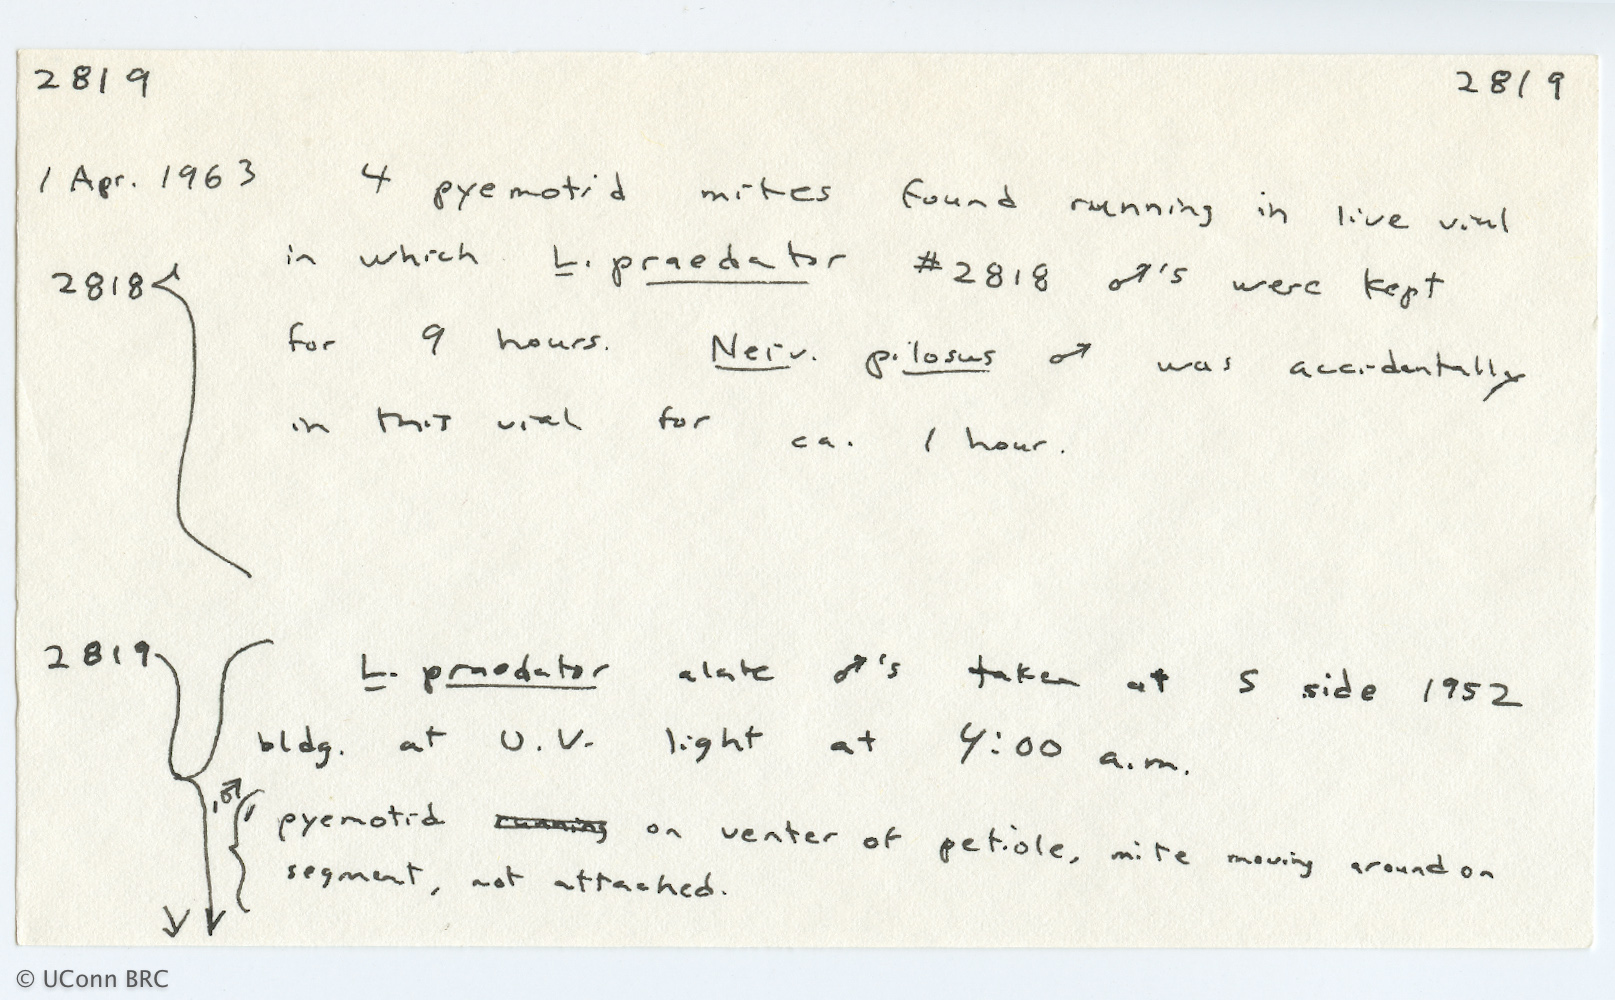 2819 2819
1 Apr. 1963 4 pyemotid mites found running in live vial
2818 in which L. praedator #2818 ♂'s were kept
for 9 hours. Neiv. pilosus ♂ was accidentally
in this vial for ca. 1 hour.
2819 L. praedator alate ♂'s taken at S side 1952
bldg. at U.V. light at 4:00 a.m.
1♂
pyemotid running on venter of petiole, mite moving around on
segment, not attached.
© UConn BRC